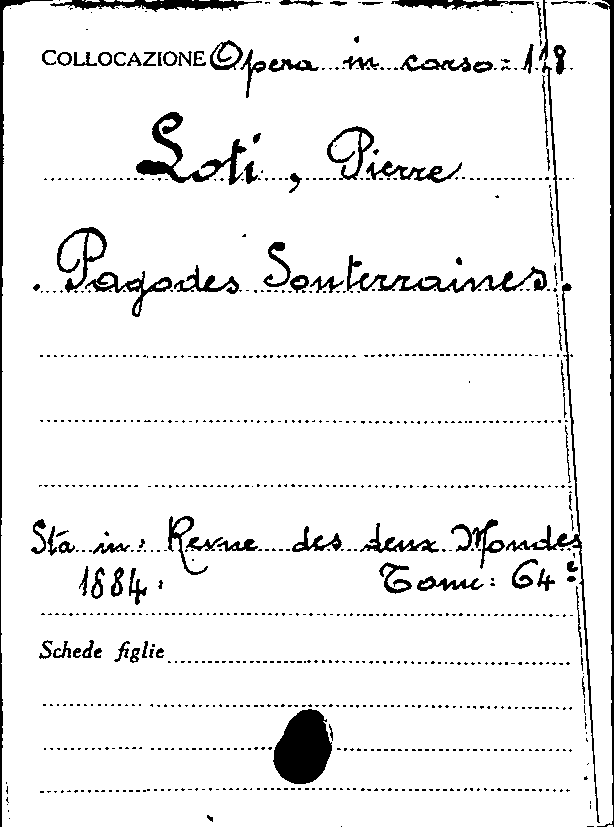 COLLOCAZIONE Opera in corso: 118
Loti, Pierre
. Pagodes Souterraines.
Sta in: Revue des deux Mondes
1884: Tome: 64e
Schede figlie